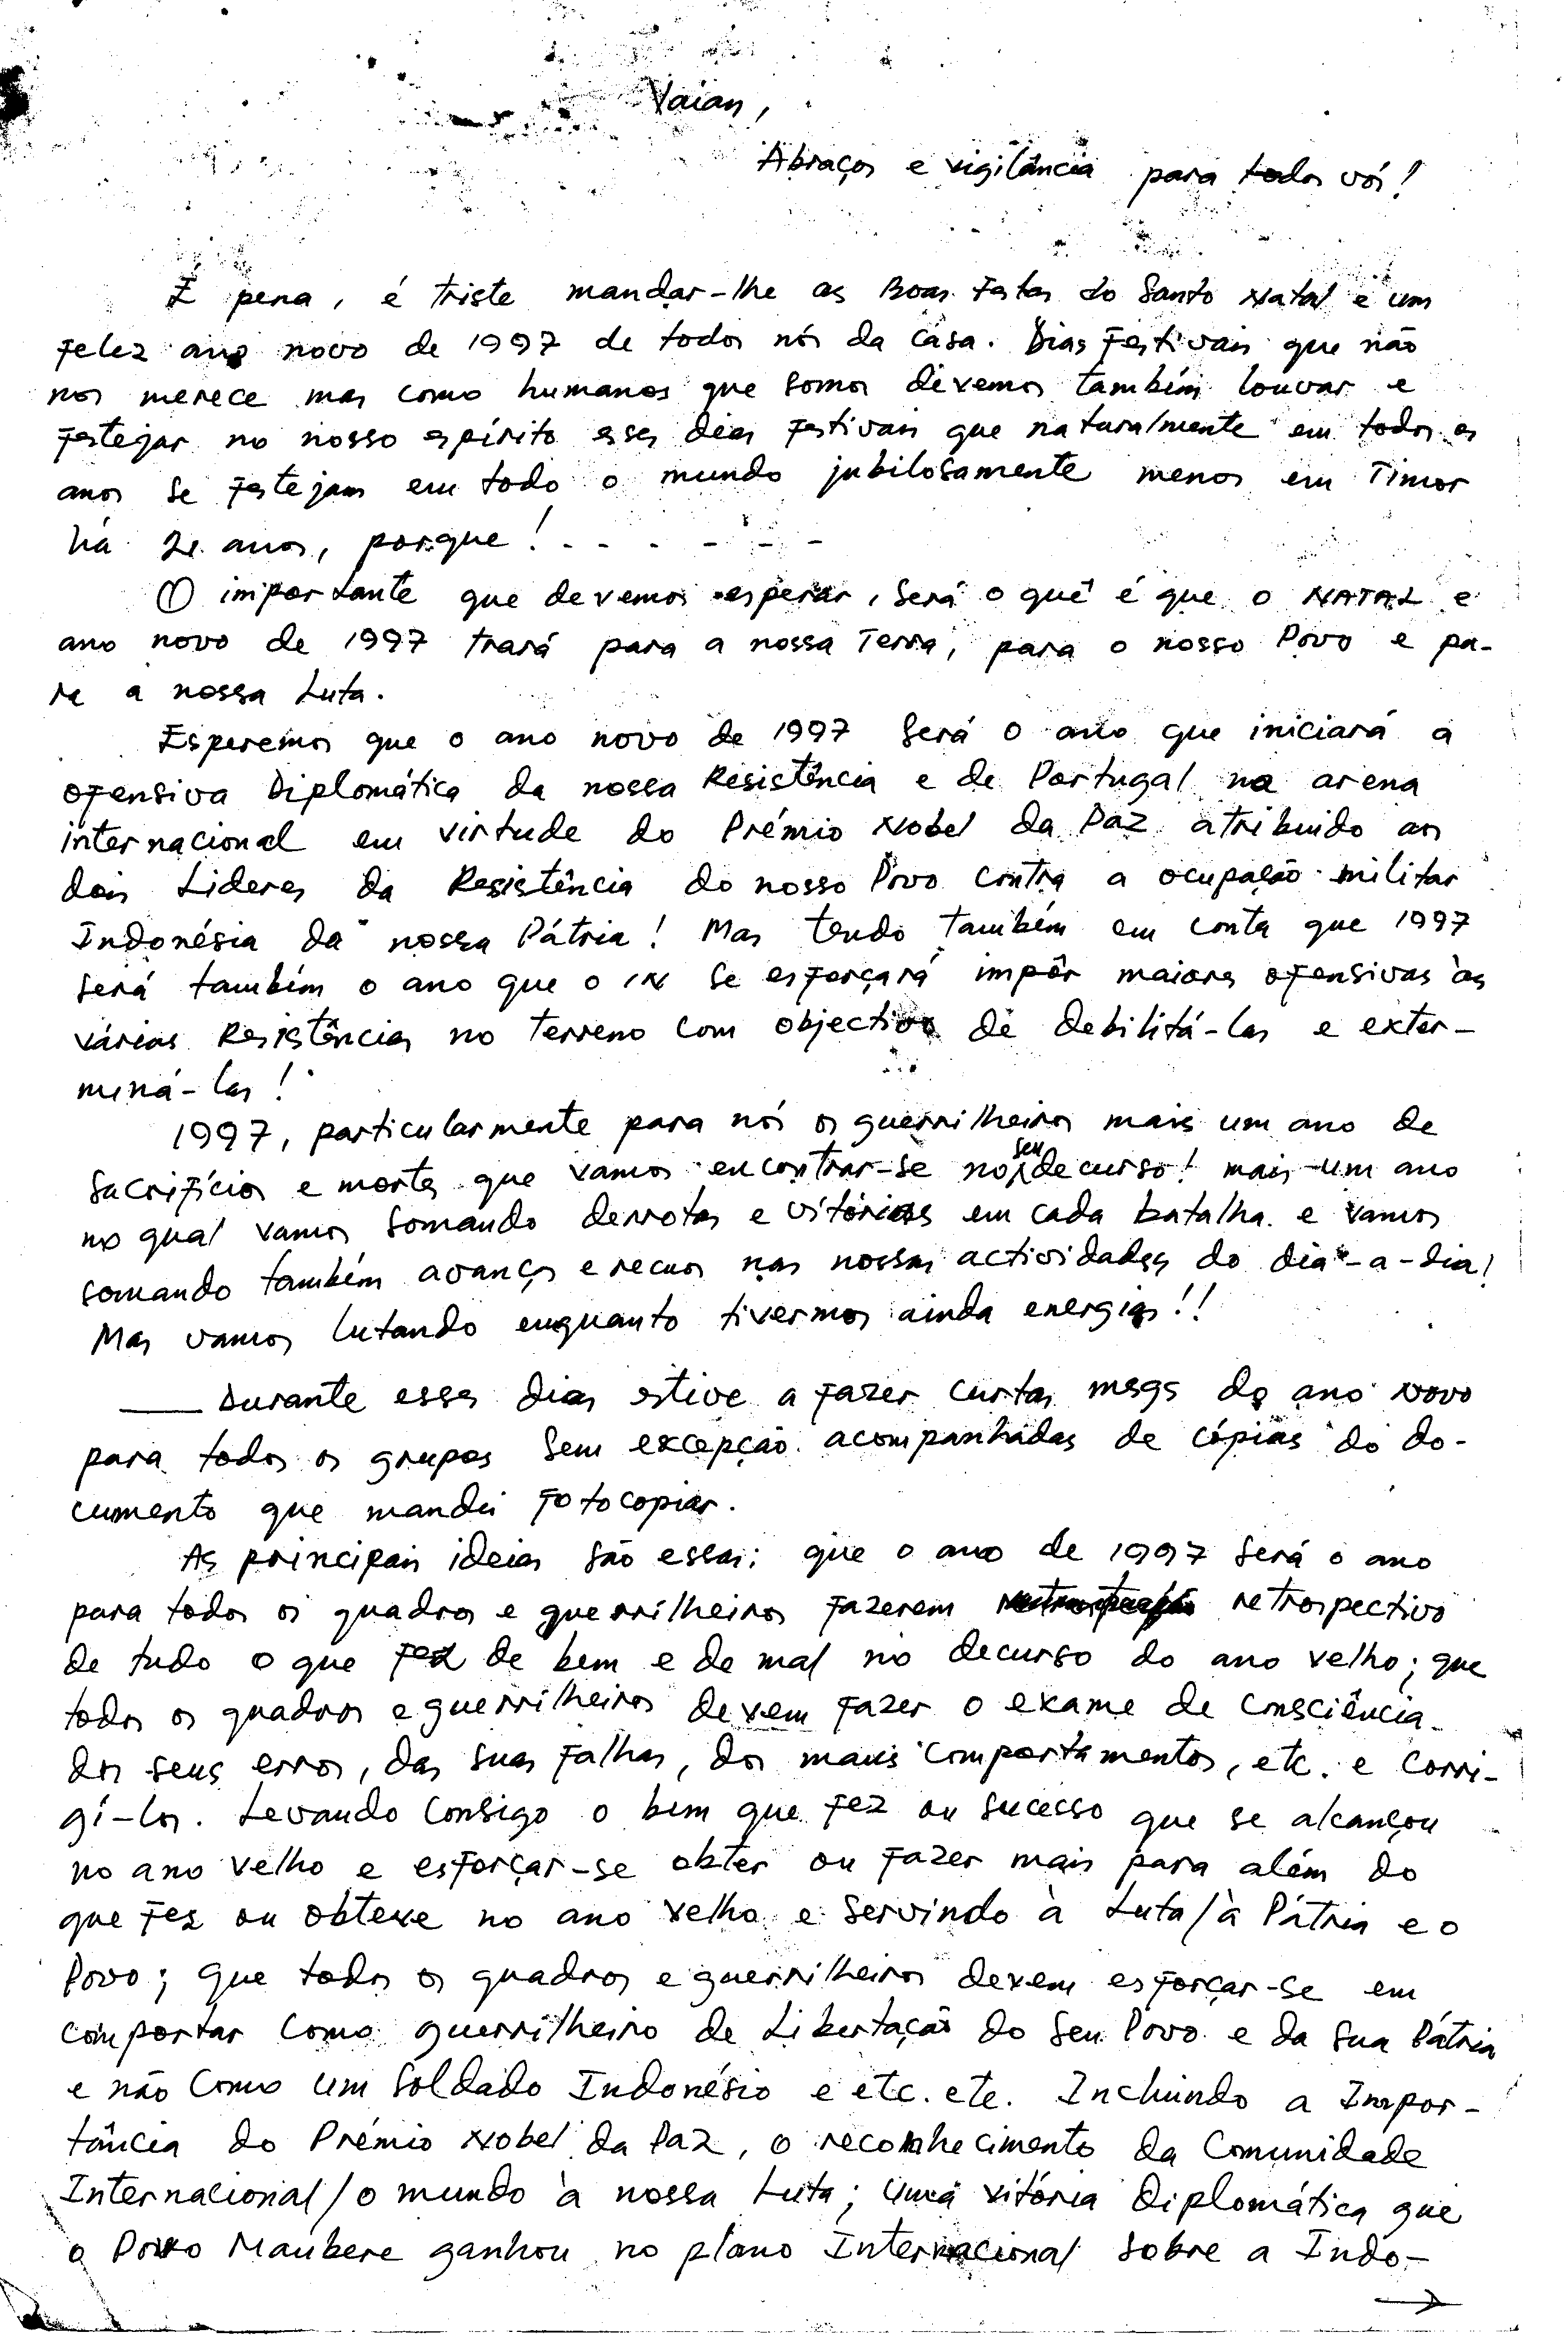 Vaian,
Abraços e vigilância para todos vós!
É pena, é triste mandar-lhe as Boas Festas do Santo Natal e um
Felez ano novo de 1997 de todos nós da casa. Dias Festivais que não
nos merece mas como humanos que somos devemos também louvar e
Festejar no nosso espírito esses dias Festivais que naturalmente em todos os
anos se Festejam em todo o mundo jubilosamente menos em Timor
há 21 anos, porque! . - . - - - -
O importante que devemos esperar, será o quê é que o NATAL e
ano novo de 1997 trará para a nossa Terra, para o nosso Povo e pa-
ra a nossa Luta.
Esperemos que o ano novo de 1997 será o ano que iniciará a
ofensiva Diplomática da nossa Resistência e de Portugal na arena
internacional em virtude do Prémio Nobel da Paz atribuido aos
dois Lideres da Resistência do nosso Povo contra a ocupação militar
Indonésia da nossa Pátria! Mas tendo também em conta que 1997
será também o ano que o IN se esforçará impôr maiores ofensivas às
várias Resistências no terreno com objectivo de debilitá-las e exter-
miná-las!
1997, particularmente para nós os guerrilheiros mais um ano de
sacrifícios e mortes que vamos encontrar-se no seu decurso! mais um ano
no qual vamos somando derrotas e vitórias em cada batalha e vamos
somando também avanços e recuos nas nossas actividades do dia-a-dia!
Mas vamos lutando enquanto tivermos ainda energias!!
Durante esses dias estive a Fazer curtas msgs do ano Novo
para todos os grupos sem excepção acompanhadas de cópias do do-
cumento que mandei Fotocopiar.
As principais ideias são essas: que o ano de 1997 será o ano
para todos os quadros e guerrilheiros Fazerem retrospectivo
de tudo o que Fez de bem e de mal no decurso do ano velho; que
todos os quadros e guerrilheiros devem Fazer o exame de Consciência
dos seus erros, das suas Falhas, dos maus comportamentos, etc. e corri-
gí-los. Levando consigo o bem que Fez ou sucesso que se alcançou
no ano velho e esforçar-se obter ou Fazer mais para além do
que Fez ou obteve no ano velho e servindo à Luta/à Pátria e o
Povo; que todos os quadros e guerrilheiros devem esforçar-se em
comportar como guerrilheiro de Libertação do seu Povo e da sua Pátria
e não como um soldado Indonésio e etc. etc. Incluindo a Impor-
tância do Prémio Nobel da Paz, o reconhecimento da Comunidade
Internacional/o mundo à nossa Luta; uma vitória Diplomática que
o Povo Maubere ganhou no plano Internacional sobre a Indo-